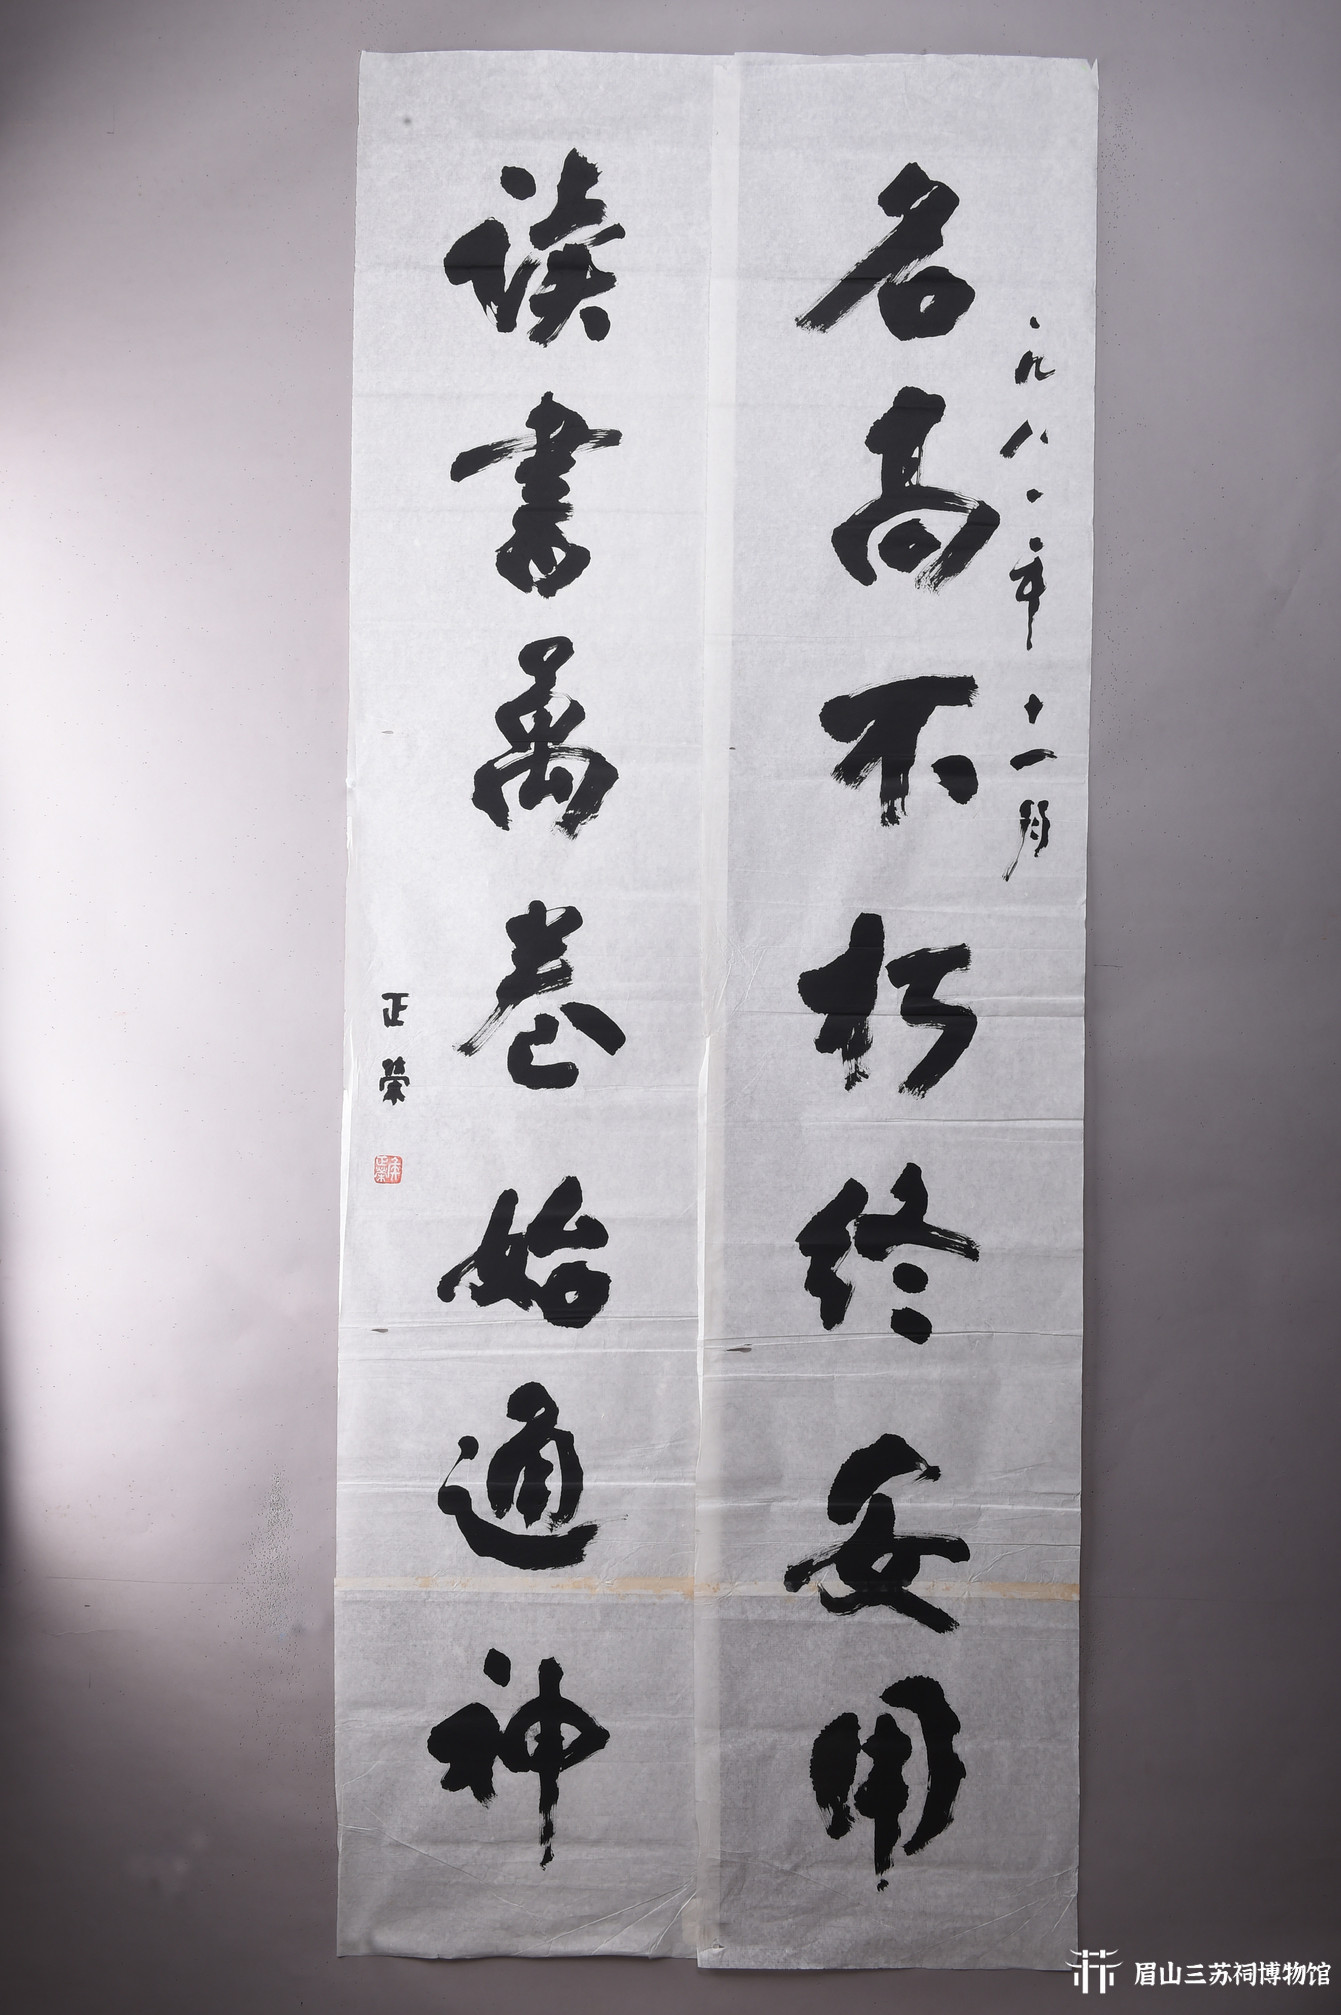 一九八一年十一月
名高不朽终安用
读书万卷始通神
正荣
眉山三苏祠博物馆